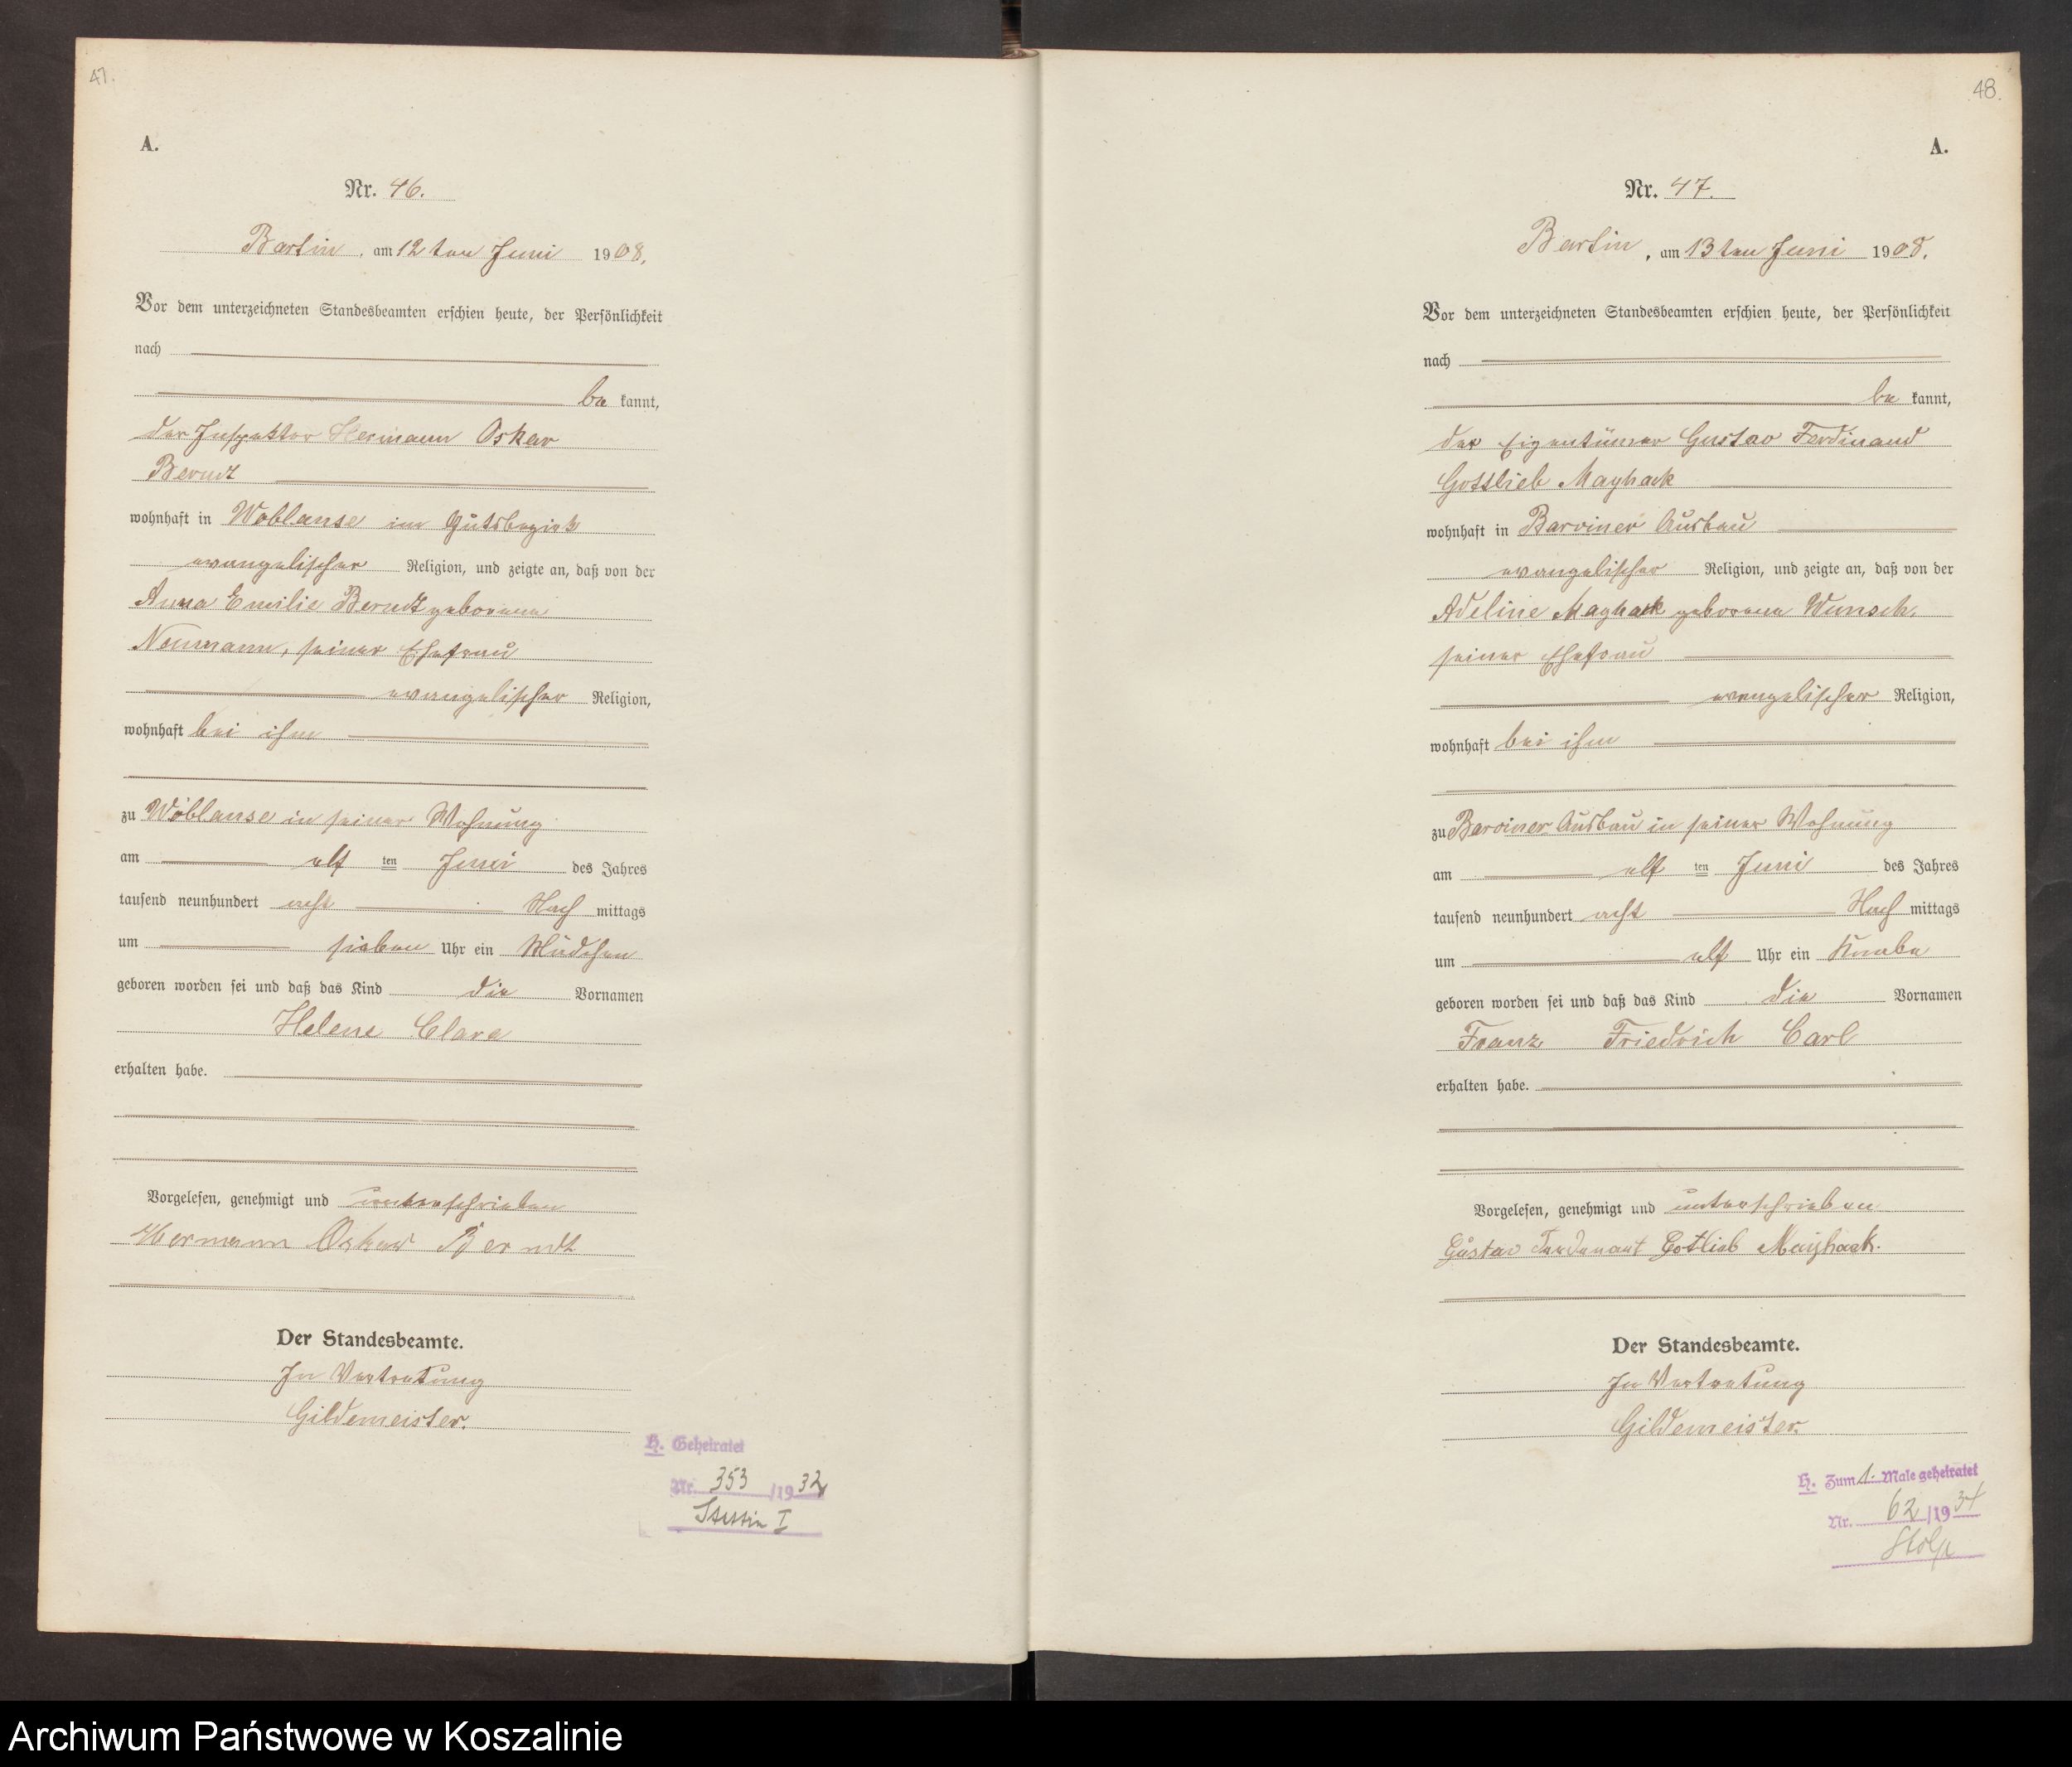 47.
A.
Nr. 46.
Bartin, am 12ten Juni 1908.
Vor dem unterzeichneten Standesbeamten erschien heute, der Persönlichkeit
nach
be kannt,
der Inspektor Hermann Oskar
Berndt
wohnhaft in Woblanse im Gutsbezirk
evangelischer Religion, und zeigte an, daß von der
Anna Emilie Berndt geborene
Neumann, seiner Ehefrau
evangelischer Religion,
wohnhaft bei ihm
zu Woblanse in seiner Wohnung
am elf ten Juni des Jahres
tausend neunhundert acht Nach mittags
um sieben Uhr ein Mädchen
geboren worden sei und daß das Kind die Vornamen
Helene Clara
erhalten habe.
Vorgelesen, genehmigt und unterschrieben
Hermann Oskar Berndt
Der Standesbeamte.
In Vertretung
Gildemeister.
H. Geheiratet
Nr. 353 /1932
Stettin I
48.
A.
Nr. 47.
Bartin, am 13ten Juni 1908.
Vor dem unterzeichneten Standesbeamten erschien heute, der Persönlichkeit
nach
be kannt,
der Eigentümer Gustav Ferdinand
Gottlieb Mayhack
wohnhaft in Barviner Ausbau
evangelischer Religion, und zeigte an, daß von der
Adeline Mayhack geborene Wunsch,
seiner Ehefrau
evangelischer Religion,
wohnhaft bei ihm
zu Barviner Ausbau in seiner Wohnung
am elf ten Juni des Jahres
tausend neunhundert acht Nach mittags
um elf Uhr ein Knabe
geboren worden sei und daß das Kind die Vornamen
Franz Friedrich Carl
erhalten habe.
Vorgelesen, genehmigt und unterschrieben
Gustav Gotlieb Mayhack.
Der Standesbeamte.
In Vertretung
Gildemeister.
H. Zum 1. Male geheiratet
Nr. 62 /1934
Stolp
Archiwum Państwowe w Koszalinie